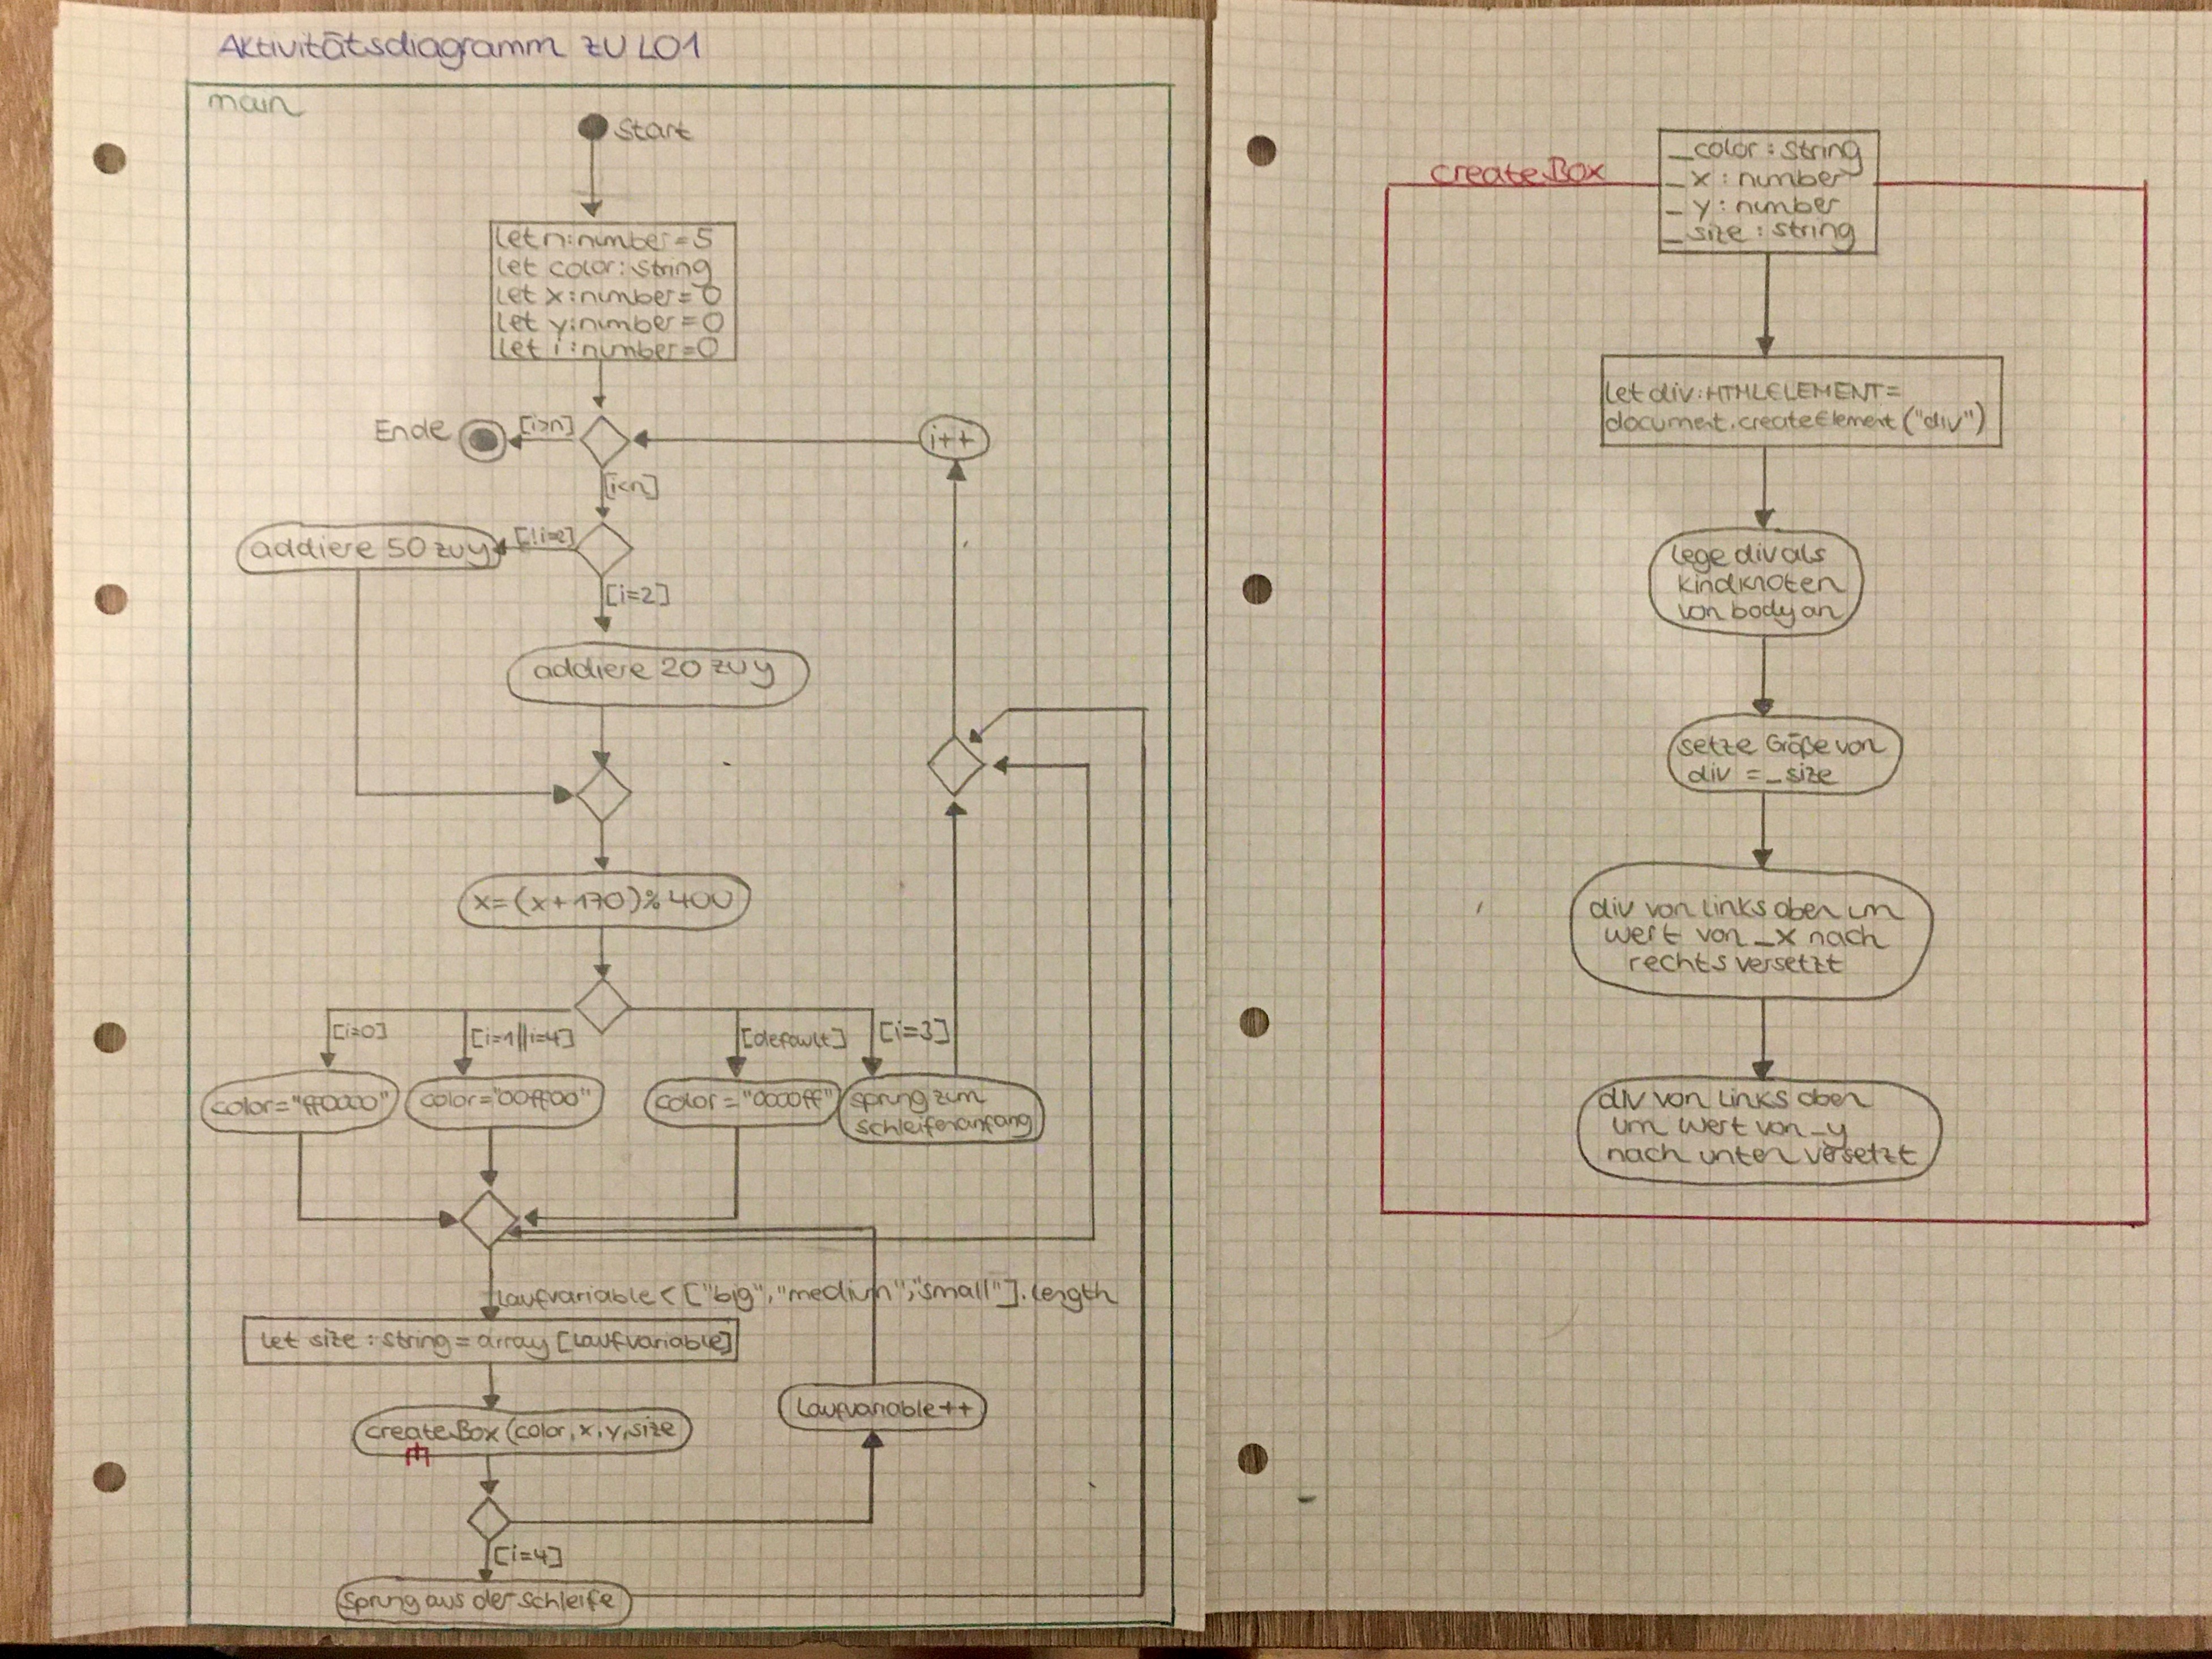 Aktivitätsdiagramm zu L01
main
Start
let n:number=5
let color:string
let x:number=0
let y:number=0
let i:number=0
Ende
[i>n]
i++
[i<n]
addiere 50 zu y
[!i=2]
[i=2]
addiere 20 zu y
x=(x+170)%400
[i=0]
[i=1||i=4]
[default]
[i=3]
color="ff0000"
color="00ff00"
color="0000ff"
sprung zum
schleifenanfang
Laufvariable<["big","medium","small"].length
let size:string=array[Laufvariable]
createBox(color,x,y,size
Laufvariable++
[i=4]
Sprung aus der Schleife
createBox
_color:string
_x:number
_y:number
_size:string
let div:HTMLELEMENT=
document.createElement("div")
lege div als
kindknoten
von body an
setze Größe von
div =_size
div von links oben um
wert von _x nach
rechts versetzt
div von links oben
um Wert von _y
nach unten versetzt